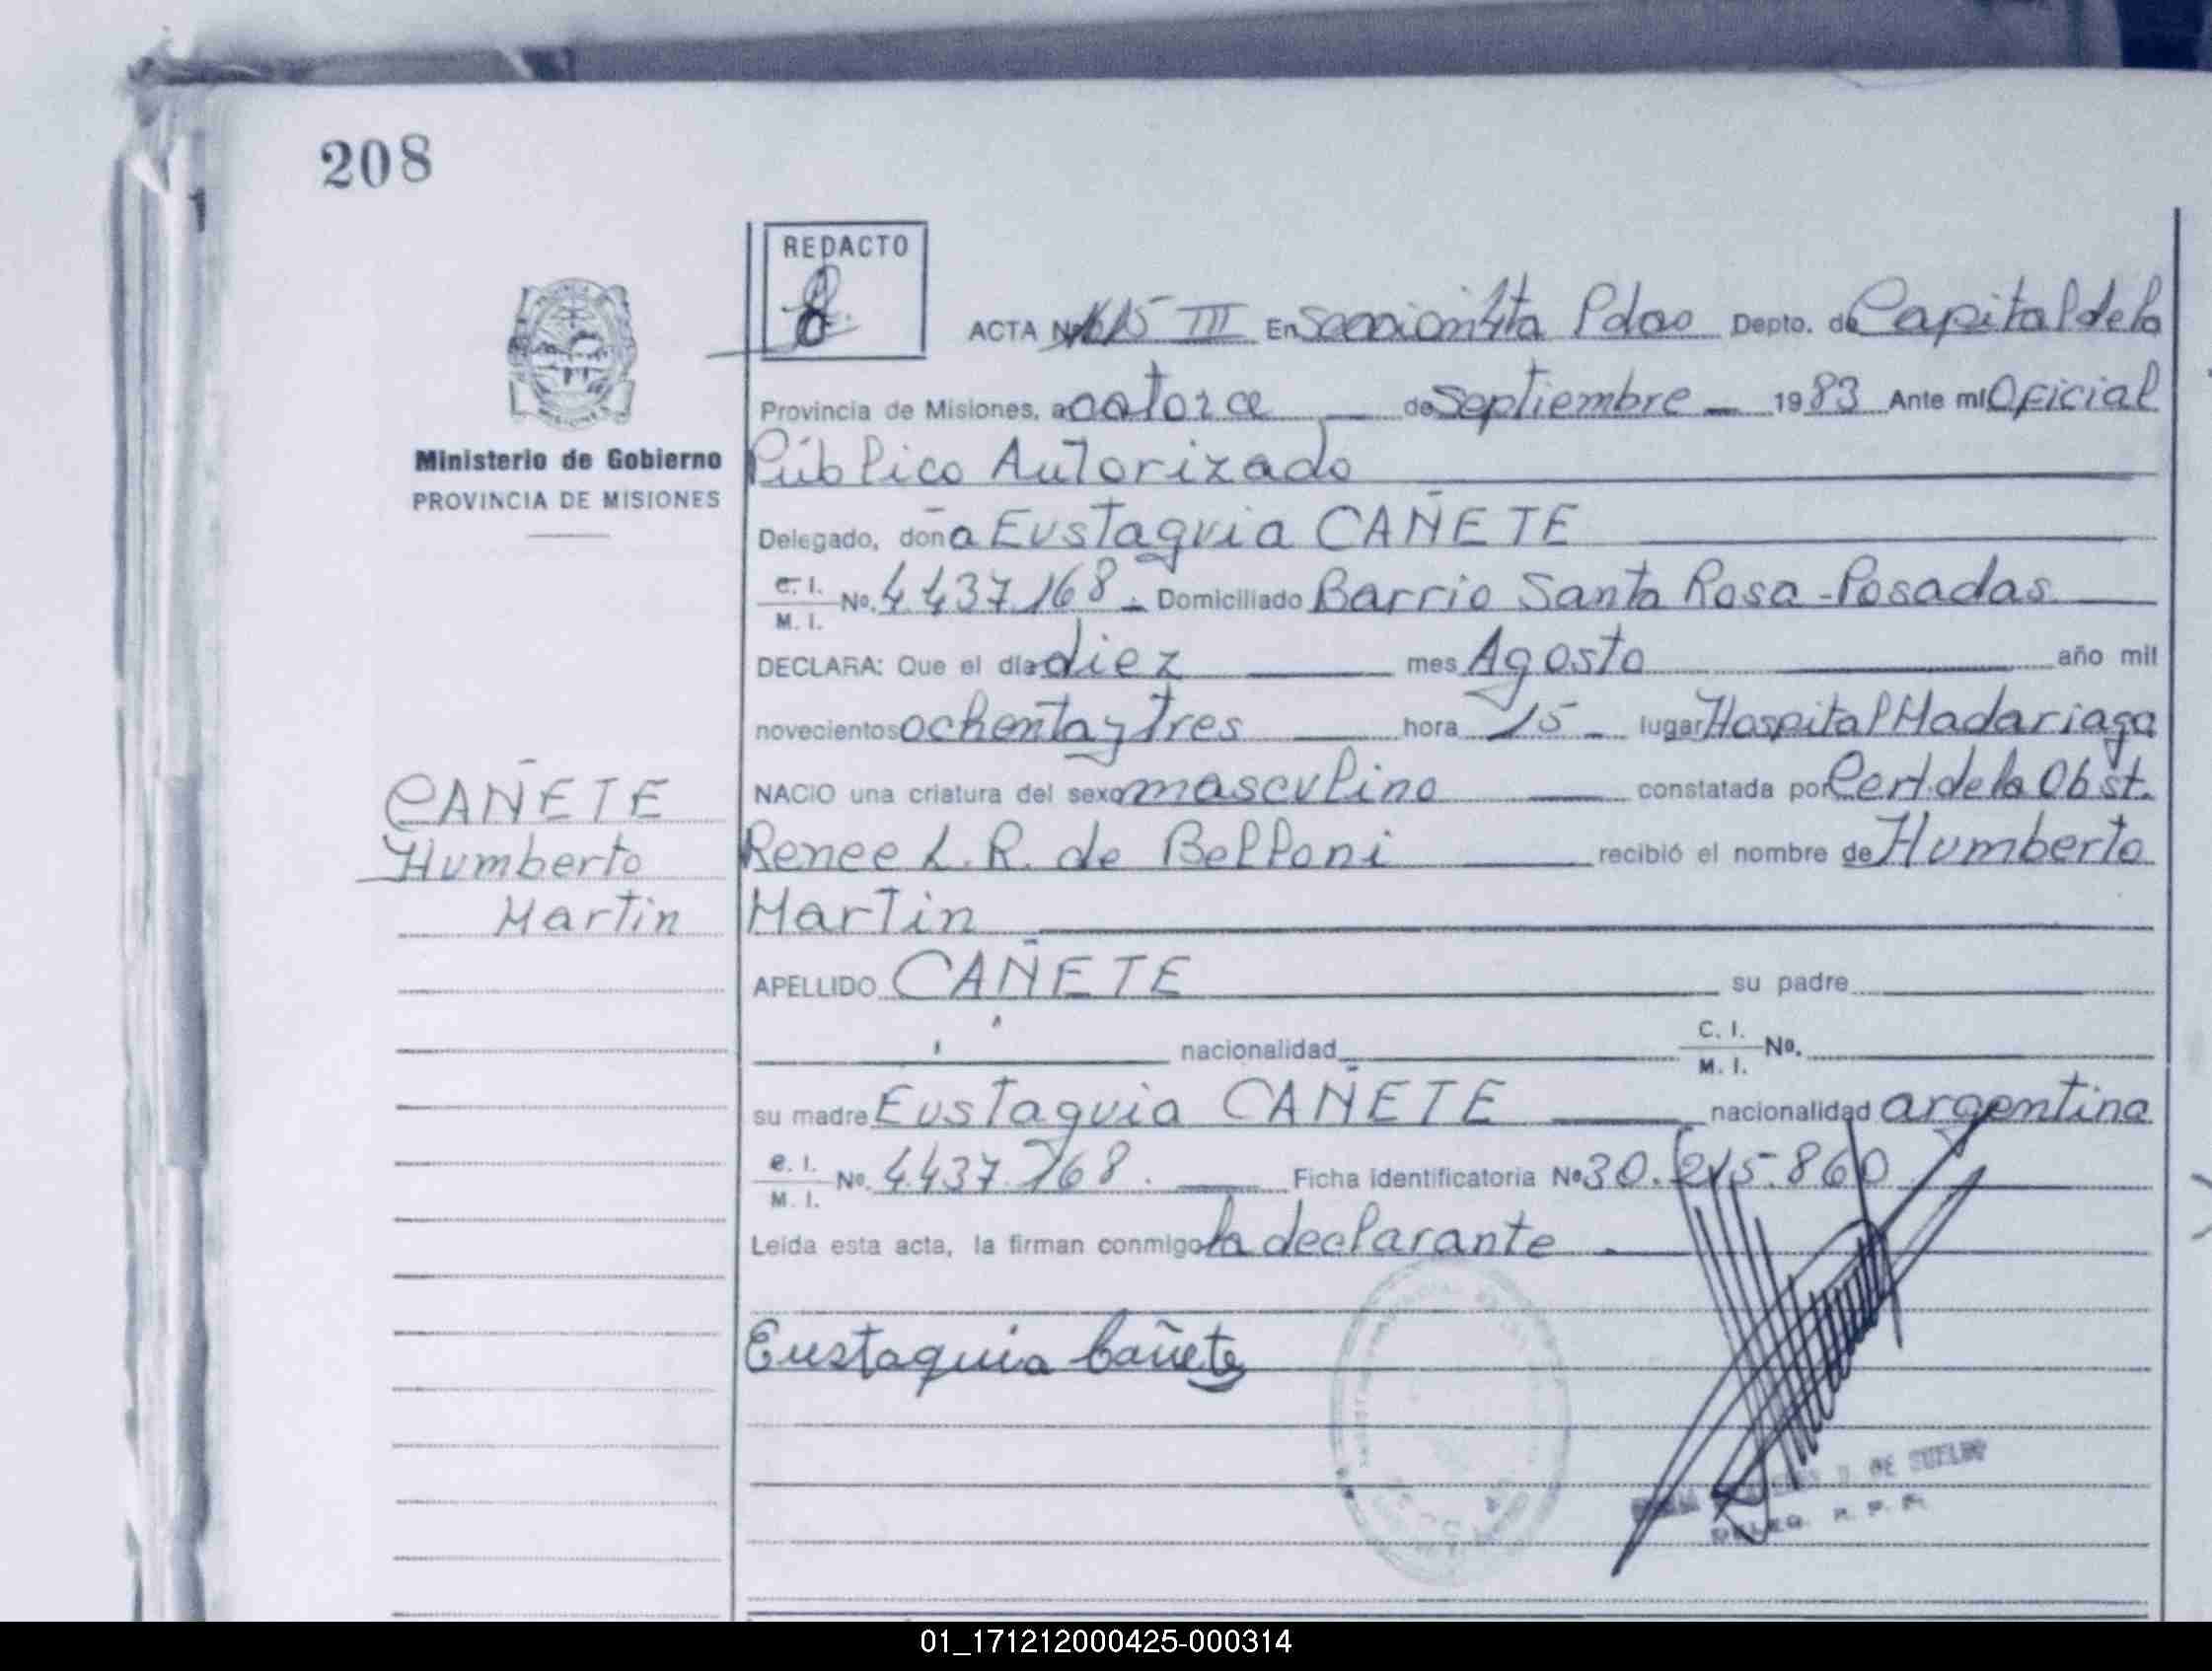 208
REDACTO
ACTA Nº 1615 III En Sección 4ta Pdas Depto. de Capital de la
Provincia de Misiones, a catorce de Septiembre 1983 Ante mi Oficial
Ministerio de Gobierno
PROVINCIA DE MISIONES
Público Autorizado
Delegado, doña Eustaquia CAÑETE
C. I. M. I. No. 4.437.168. Domiciliado Barrio Santa Rosa-Posadas
DECLARA: Que el día diez mes Agosto año mil
novecientos ochenta y tres hora 15 lugar Hospital Madariaga
NACIO una criatura del sexo masculino constatada por Cert. de la Obst.
Renee L. R. de Belloni recibió el nombre de Humberto
Martin
CAÑETE
Humberto
Martin
APELLIDO CAÑETE su padre
nacionalidad C. I. M. I. No.
su madre Eustaquia CAÑETE nacionalidad argentina
C. I. M. I. No. 4.437.168. Ficha identificatoria Nº 30.215.860
Leída esta acta, la firman conmigo la declarante
Eustaquia Cañete
DE SUELDO
DELEG. R. P. P.
01_171212000425-000314